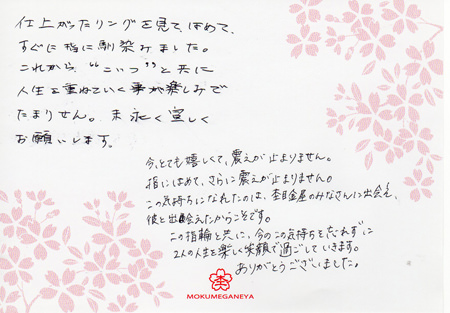 仕上がったリングを見て、はめて、
すぐに指に馴染みました。
これから、“こいつ”と共に
人生を重ねていく事が楽しみで
たまりません。末永く宜しく
お願いします。
今、とても嬉しくて、震えが止まりません。
指にはめて、さらに震えが止まりません。
この気持ちになれたのは、杢目金屋のみなさんに出会え、
彼と出会えたからこそです。
この指輪と共に、今のこの気持ちを忘れずに
2人の人生を楽しく笑顔で過ごしていきます。
ありがとうございました。
MOKUMEGANEYA